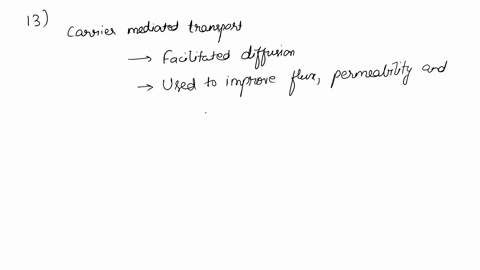 13)
Carrier mediated transport
→ Facilitated diffusion
→ Used to improve flux, permeability and